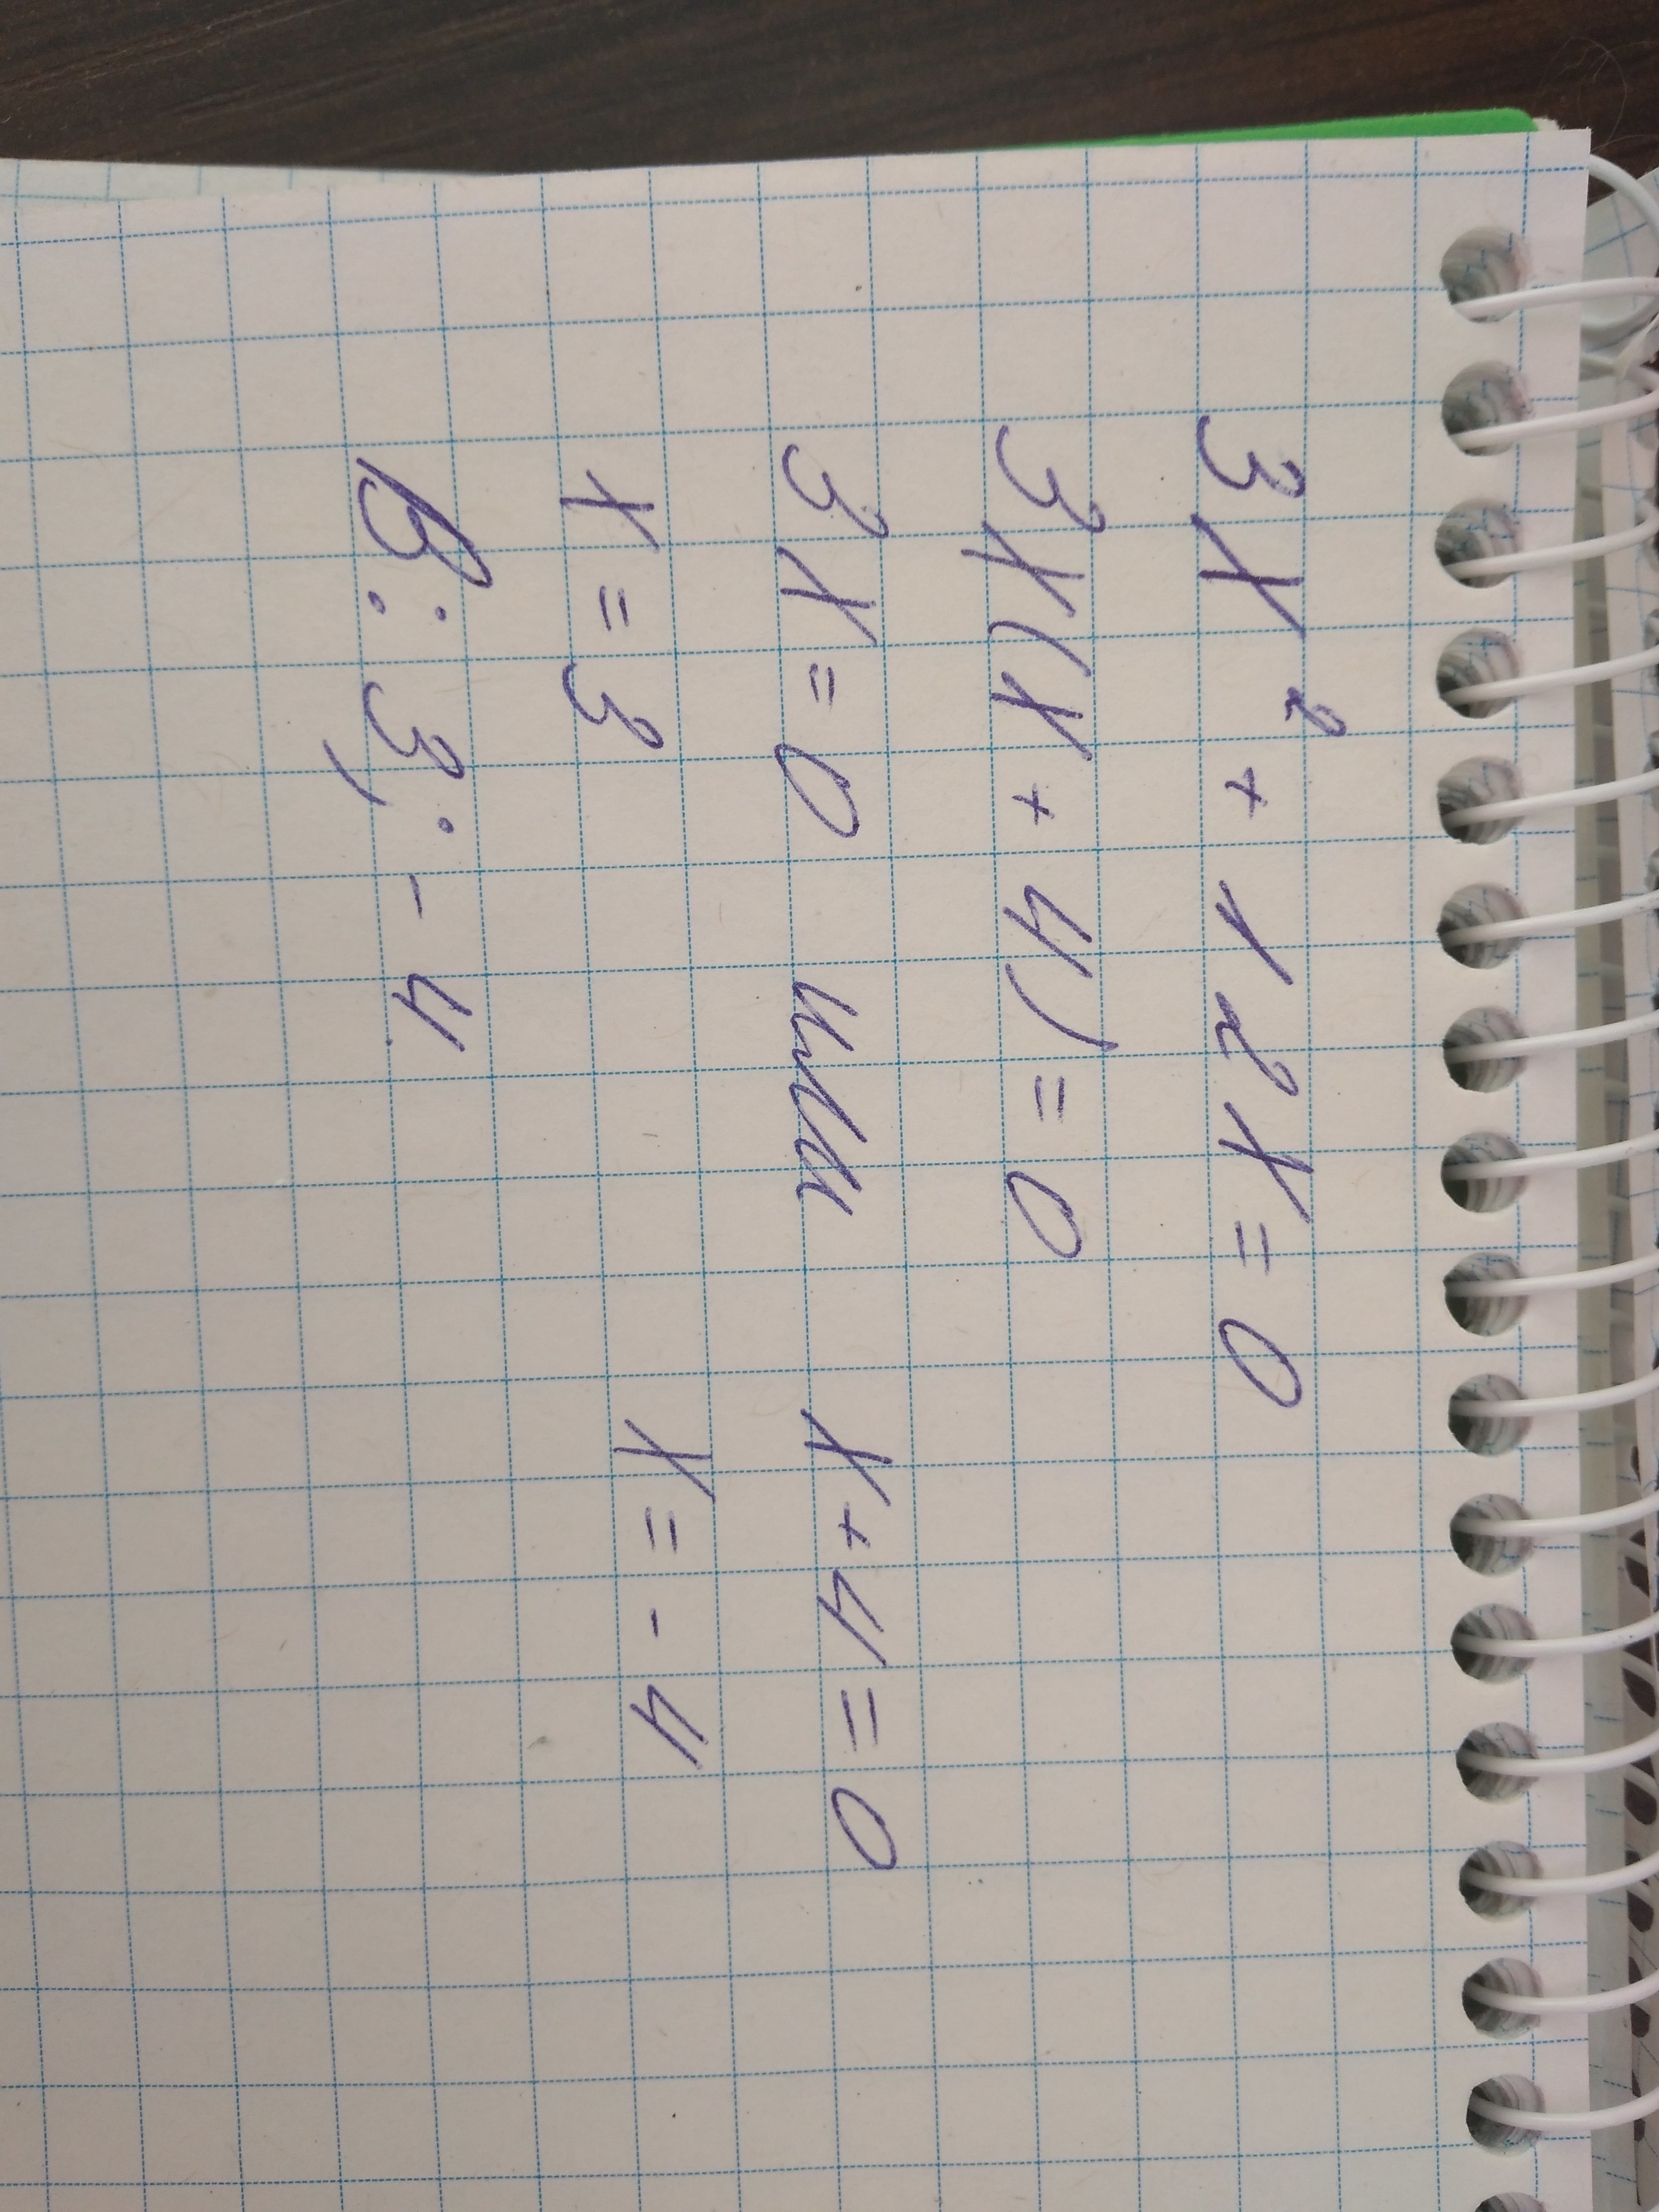 3x² + 12x = 0
3x(x + 4) = 0
3x = 0 или x + 4 = 0
x = 3 x = - 4
В: 3; - 4.